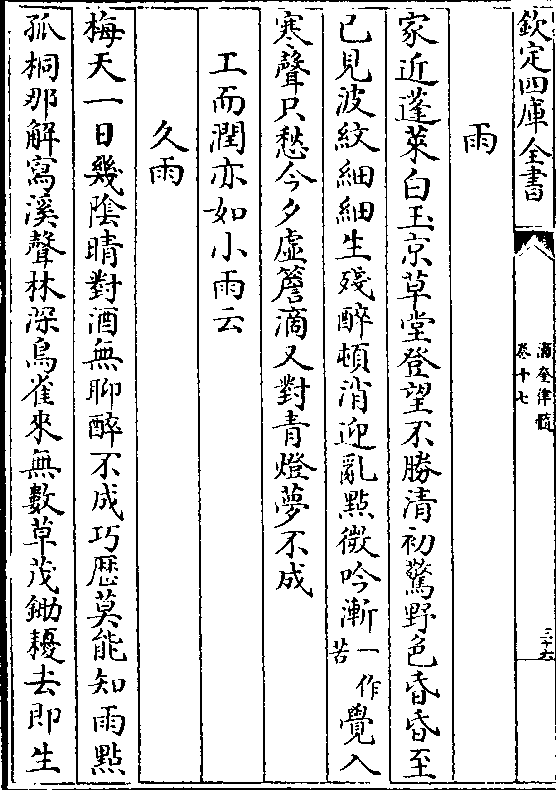 欽定四庫全書
瀛奎律髓
卷十七
三十六
雨
家近蓬萊白玉京草堂登望不勝清初驚野色昏昏至
已見波紋細細生殘醉頓消迎亂點微吟漸一作苦覺入
寒聲只愁今夕虛簷滴又對青燈夢不成
工而潤亦如小雨云
久雨
梅天一日幾陰晴對酒無聊醉不成巧歷莫能知雨點
孤桐那解寫溪聲林深鳥雀來無數草茂鋤耰去即生